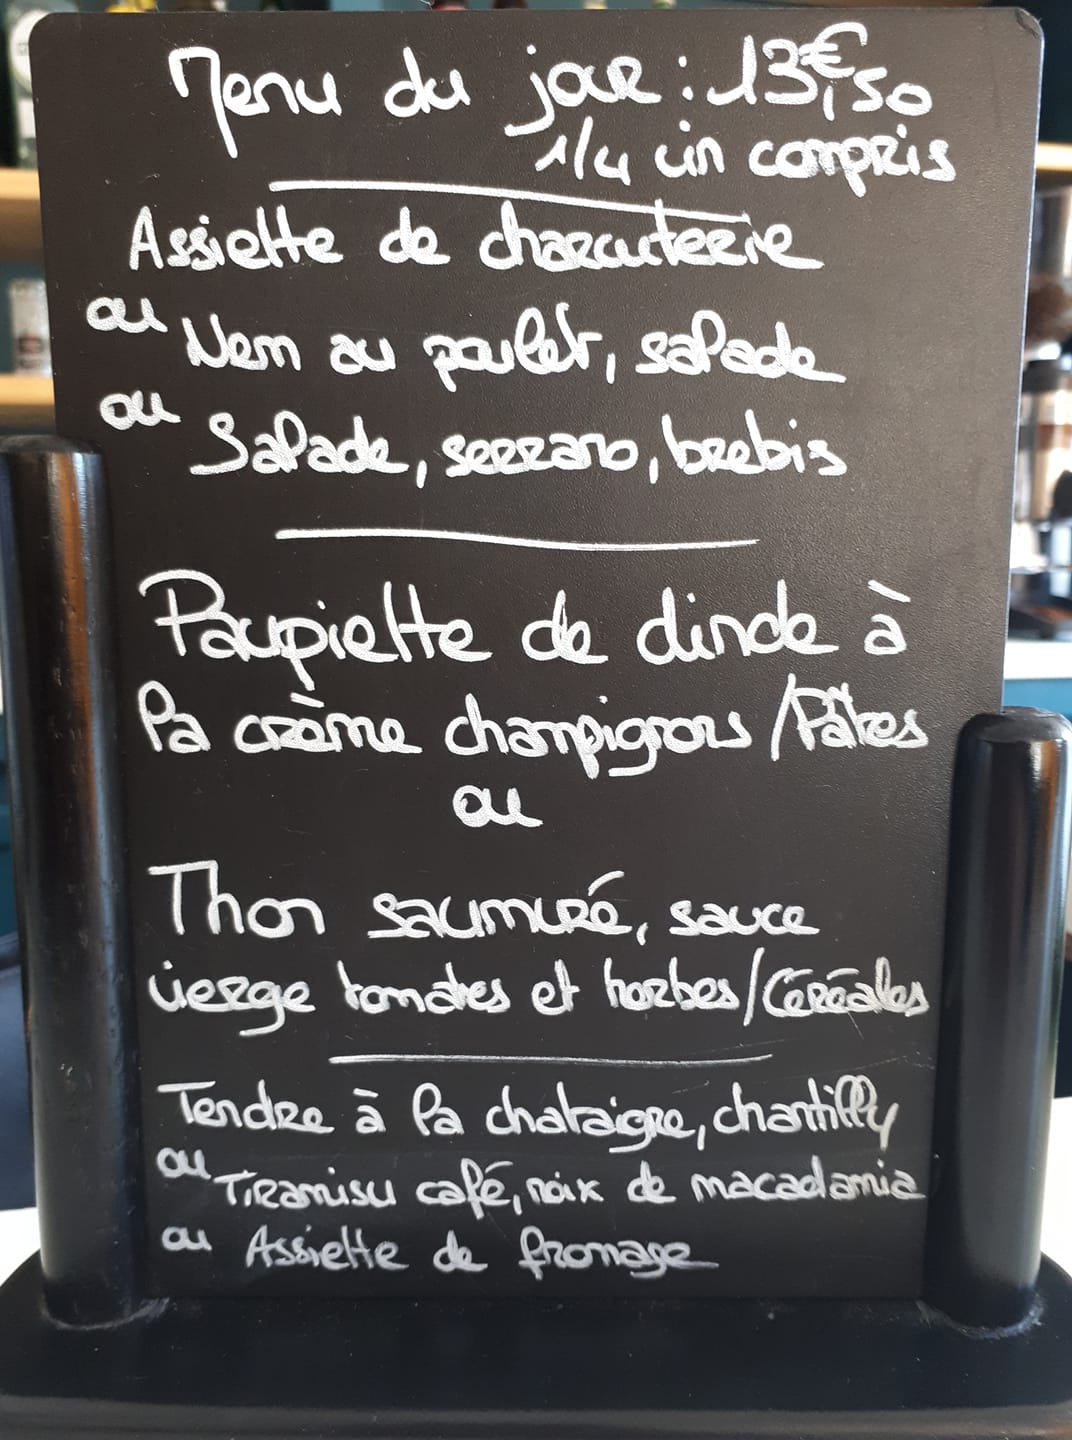 Menu du jour : 13€,50
1/4 vin compris
Assiette de charcuterie
ou Nem au poulet, salade
ou Salade, serrano, brebis
Paupiette de dinde à
la crème champignons /Pâtes
ou
Thon saumuré, sauce
vierge tomates et herbes/Céréales
Tendre à la chataigne, chantilly
ou Tiramisu café, noix de macadamia
ou Assiette de fromage